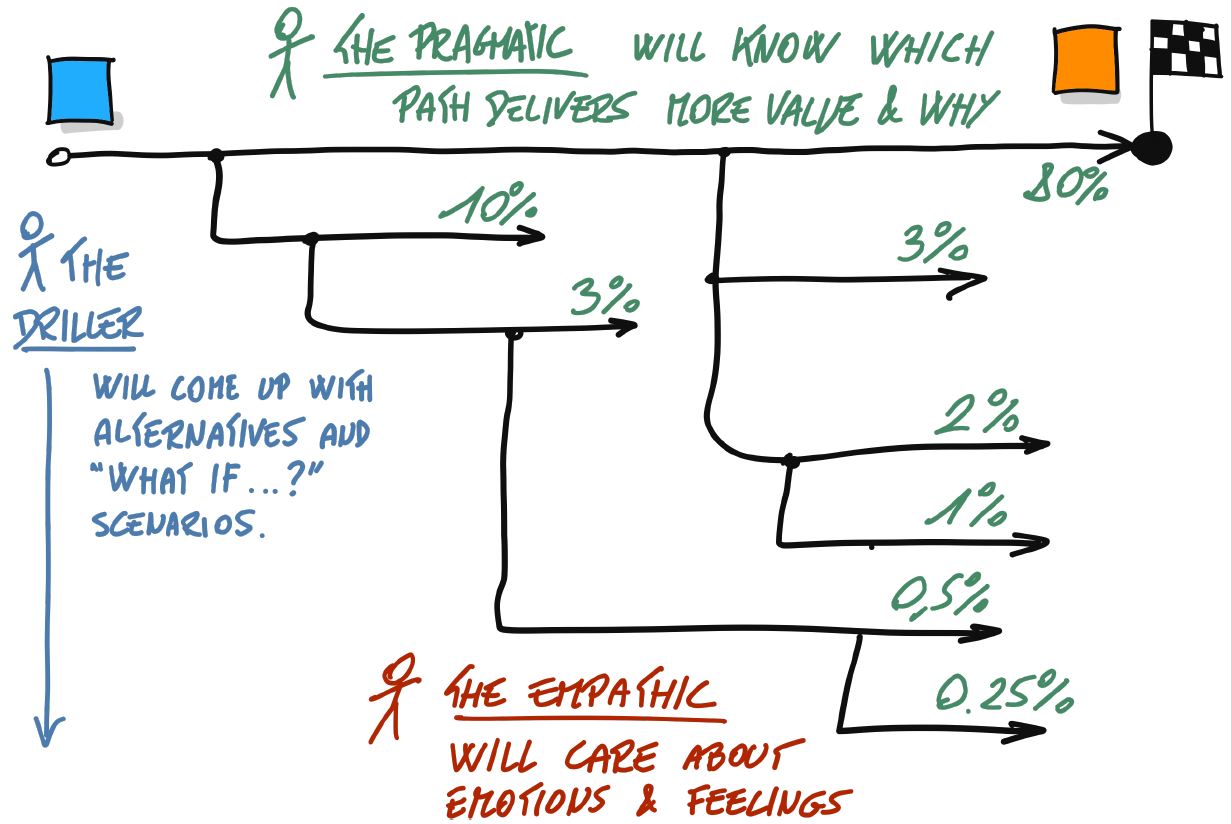 THE PRAGMATIC WILL KNOW WHICH
PATH DELIVERS MORE VALUE & WHY
80%
10%
3%
3%
THE
DRILLER
WILL COME UP WITH
ALTERNATIVES AND
"WHAT IF...?"
SCENARIOS.
2%
1%
0,5%
0.25%
THE EMPATHIC
WILL CARE ABOUT
EMOTIONS & FEELINGS